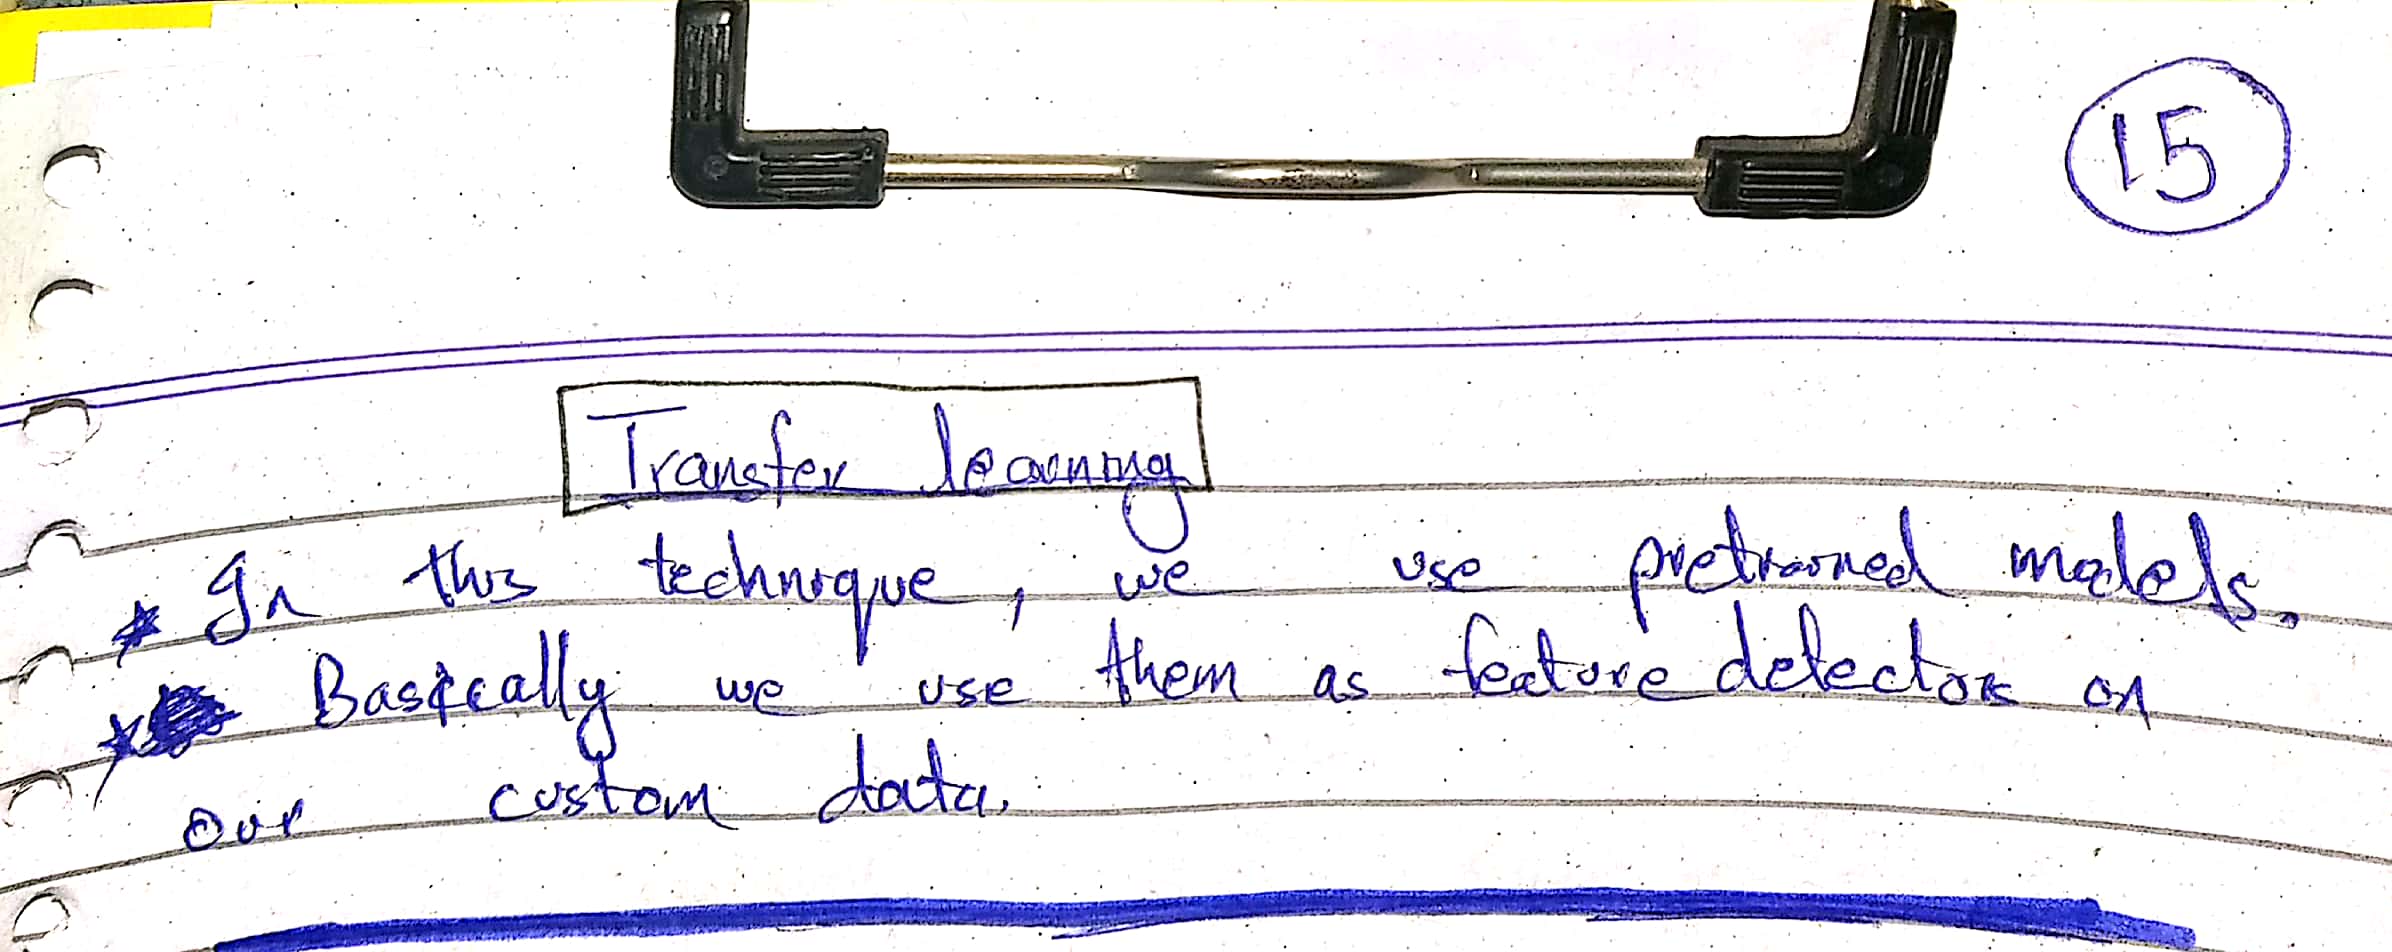 15
Transfer learning
* In this technique, we use pretrained models.
* Basically we use them as feature detector on
our custom data.